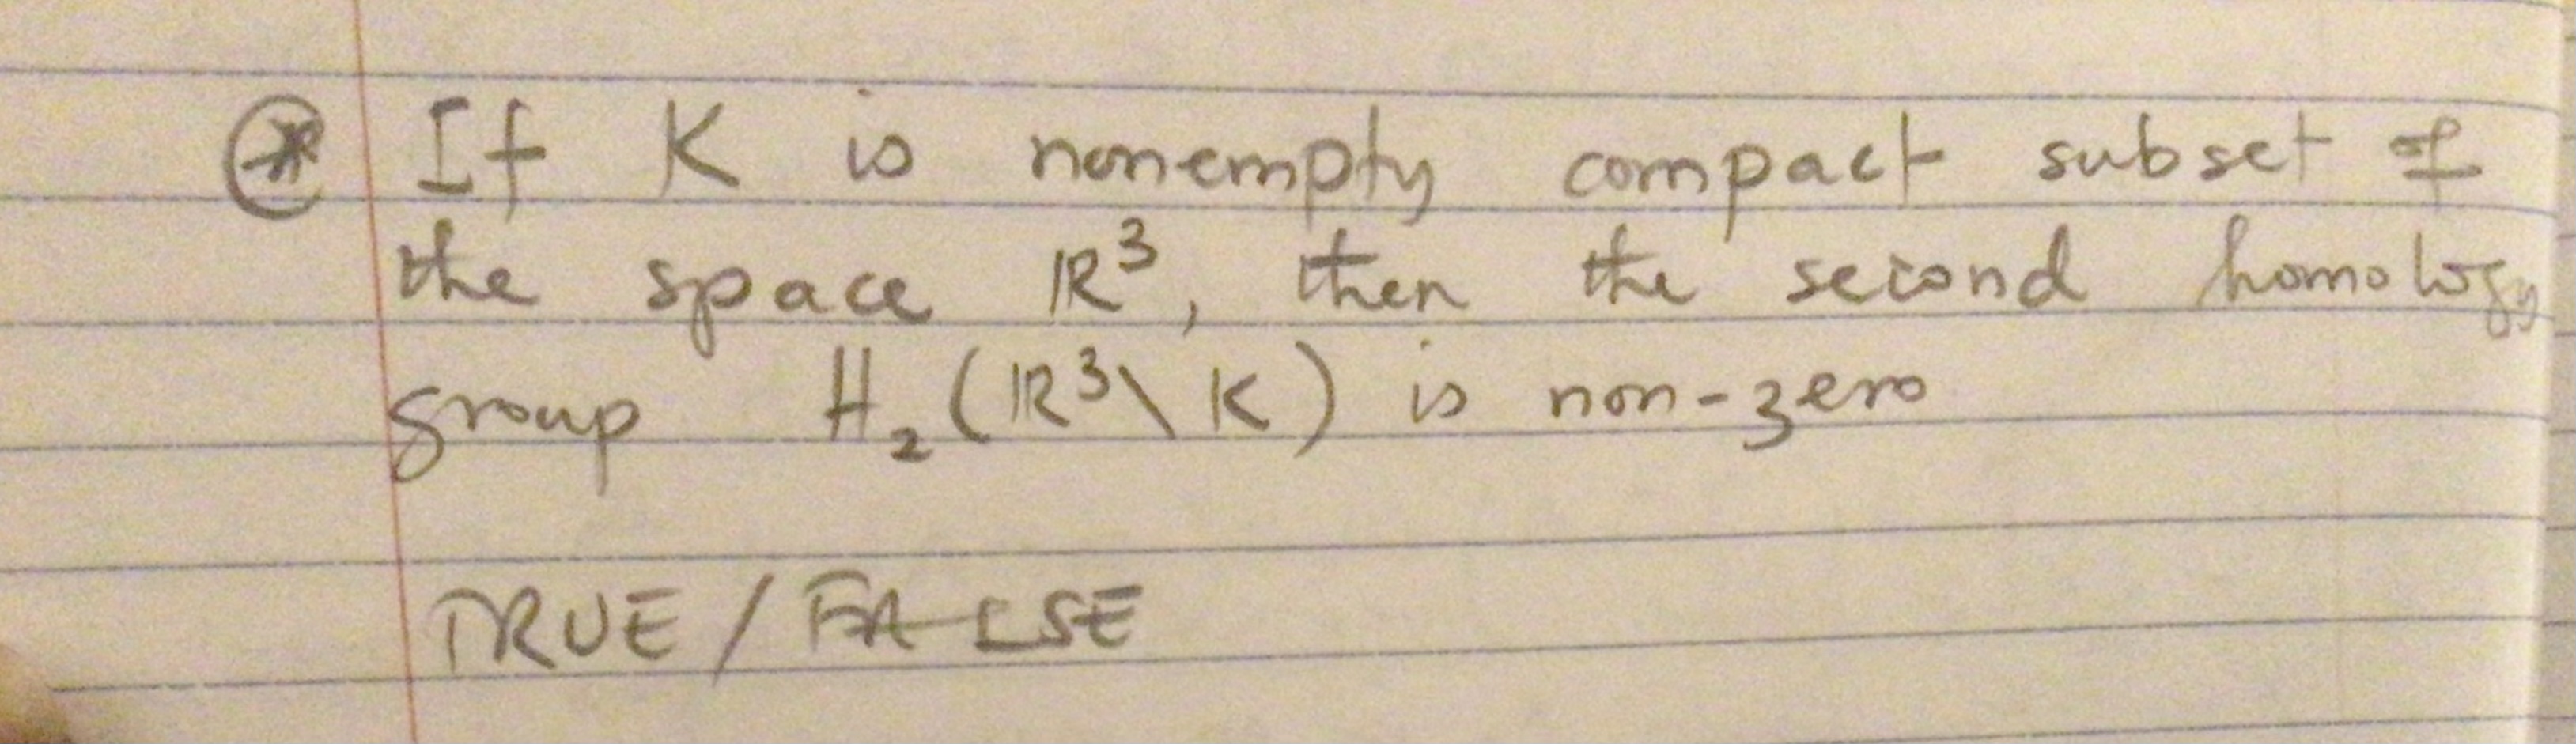 ⊛ If K is nonempty compact subset of
the space ℝ³, then the second homology
group H₂(ℝ³\K) is non-zero
TRUE / FALSE